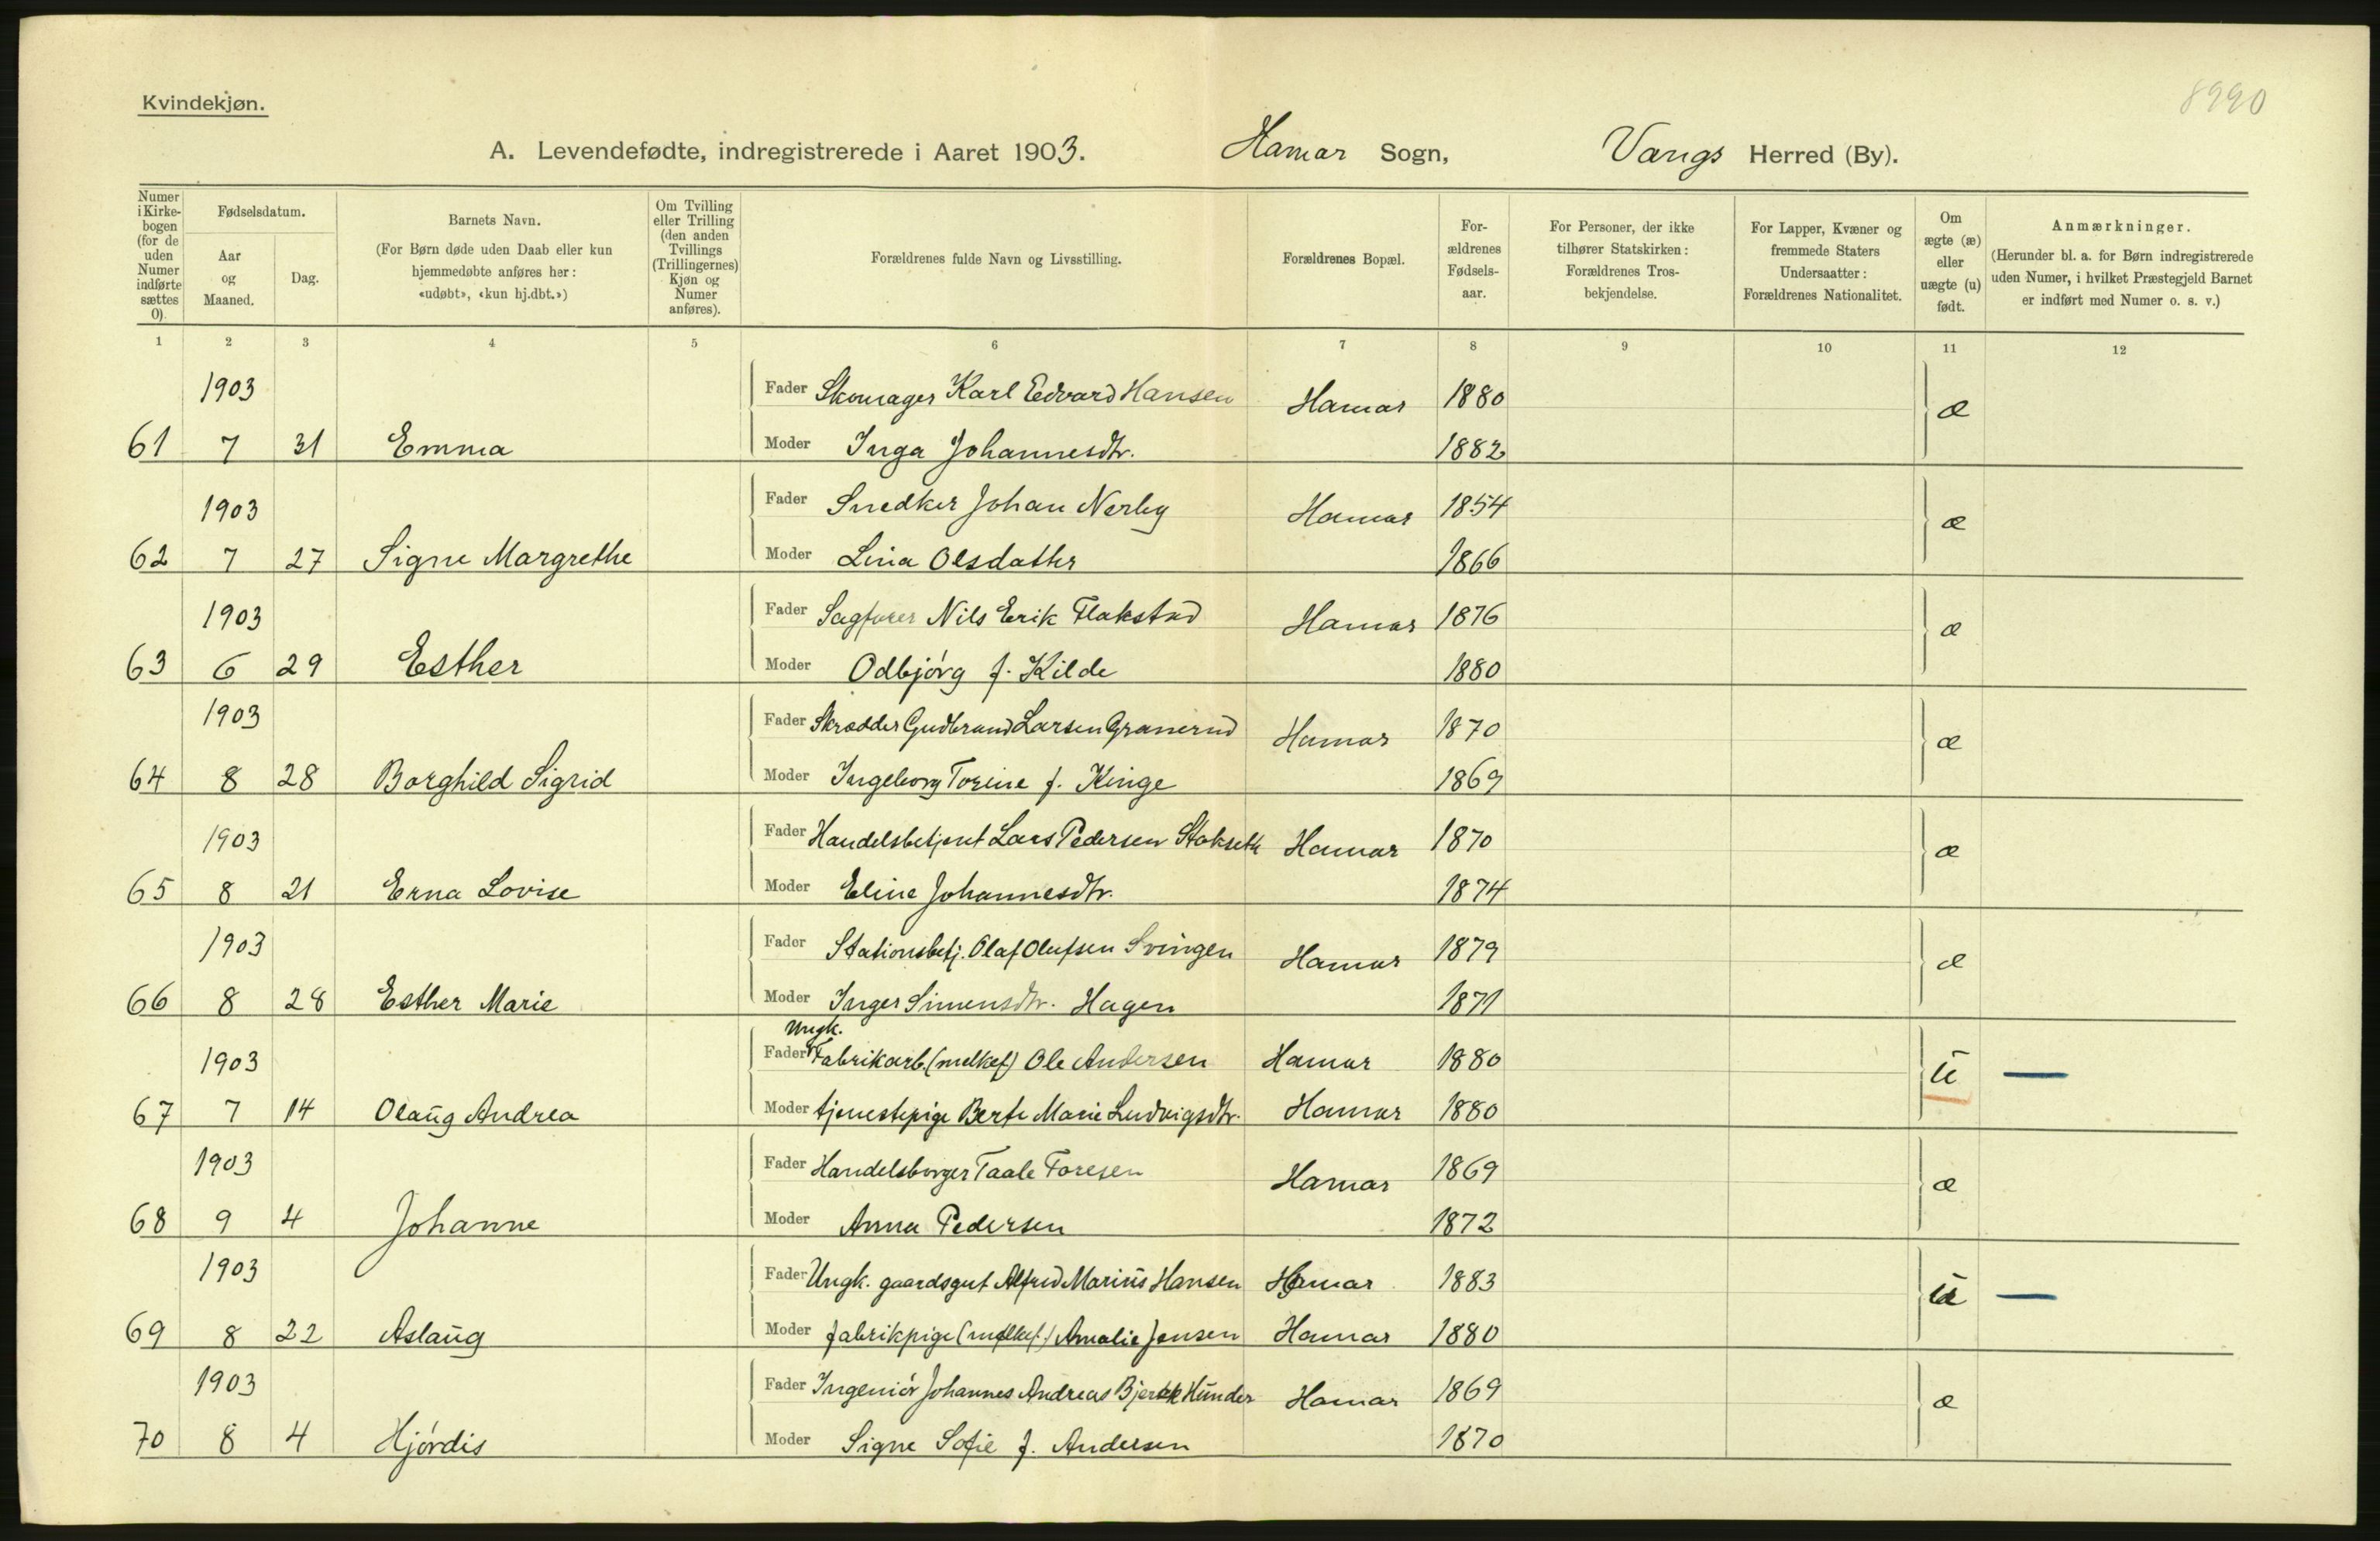 Kvindekjøn.
8990
A. Levendefødte, indregistrerede i Aaret 1903. Hamar Sogn, Vangs Herred (By).
Numer i Kirkebogen (for de uden Numer indførte sættes 0).
Fødselsdatum.
Aar og Maaned.
Dag.
Barnets Navn.
(For Børn døde uden Daab eller kun hjemmedøbte anføres her: «udøbt», «kun hj.dbt.»)
Om Tvilling eller Trilling (den anden Tvillings (Trillingernes) Kjøn og Numer anføres).
Forældrenes fulde Navn og Livsstilling.
Forældrenes Bopæl.
For-ældrenes Fødsels-aar.
For Personer, der ikke tilhører Statskirken: Forældrenes Tros-bekjendelse.
For Lapper, Kvæner og fremmede Staters Undersaatter: Forældrenes Nationalitet.
Om ægte (æ) eller uægte (u) født.
Anmærkninger.
(Herunder bl. a. for Børn indregistrerede uden Numer, i hvilket Præstegjeld Barnet er indført med Numer o. s. v.)
1 2 3 4 5 6 7 8 9 10 11 12
1903 Fader Skomager Karl Edvard Hansen Hamar 1880 æ
61 7 31 Emma Moder Inga Johannesdtr. 1882
1903 Fader Snedker Johan Nerby Hamar 1854 æ
62 7 27 Signe Margrethe Moder Lina Olsdatter 1866
1903 Fader Sagfører Nils Erik Flakstad Hamar 1876 æ
63 6 29 Esther Moder Odbjørg f. Kilde 1880
1903 Fader Skrædder Gudbrand Larsen Granerud Hamar 1870 æ
64 8 28 Borghild Sigrid Moder Ingeborg Torine f. Kinge 1869
1903 Fader Handelsbetjent Lars Pedersen Stokseth Hamar 1870 æ
65 8 21 Erna Lovise Moder Eline Johannesdtr. 1874
1903 Fader Stationsbetj. Olaf Olufsen Svingen Hamar 1879 æ
66 8 28 Esther Marie Moder Inger Simensdtr. Hagen 1871
Ungk.
1903 Fader Fabrikarb. (melkef) Ole Andersen Hamar 1880 u —
67 7 14 Olaug Andrea Moder tjenestepige Berte Marie Ludvigsdtr. Hamar 1880
1903 Fader Handelsborger Taale Foresen Hamar 1869 æ
68 9 4 Johanne Moder Anna Pedersen 1872
1903 Fader Ungk. gaardsgut Alfred Marius Hansen Hamar 1883 u —
69 8 22 Aslaug Moder fabrikpige (melkef.) Amalie Jensen Hamar 1880
1903 Fader Ingeniør Johannes Andreas Bjerck Hunder Hamar 1869 æ
70 8 4 Hjørdis Moder Signe Sofie f. Andersen 1870